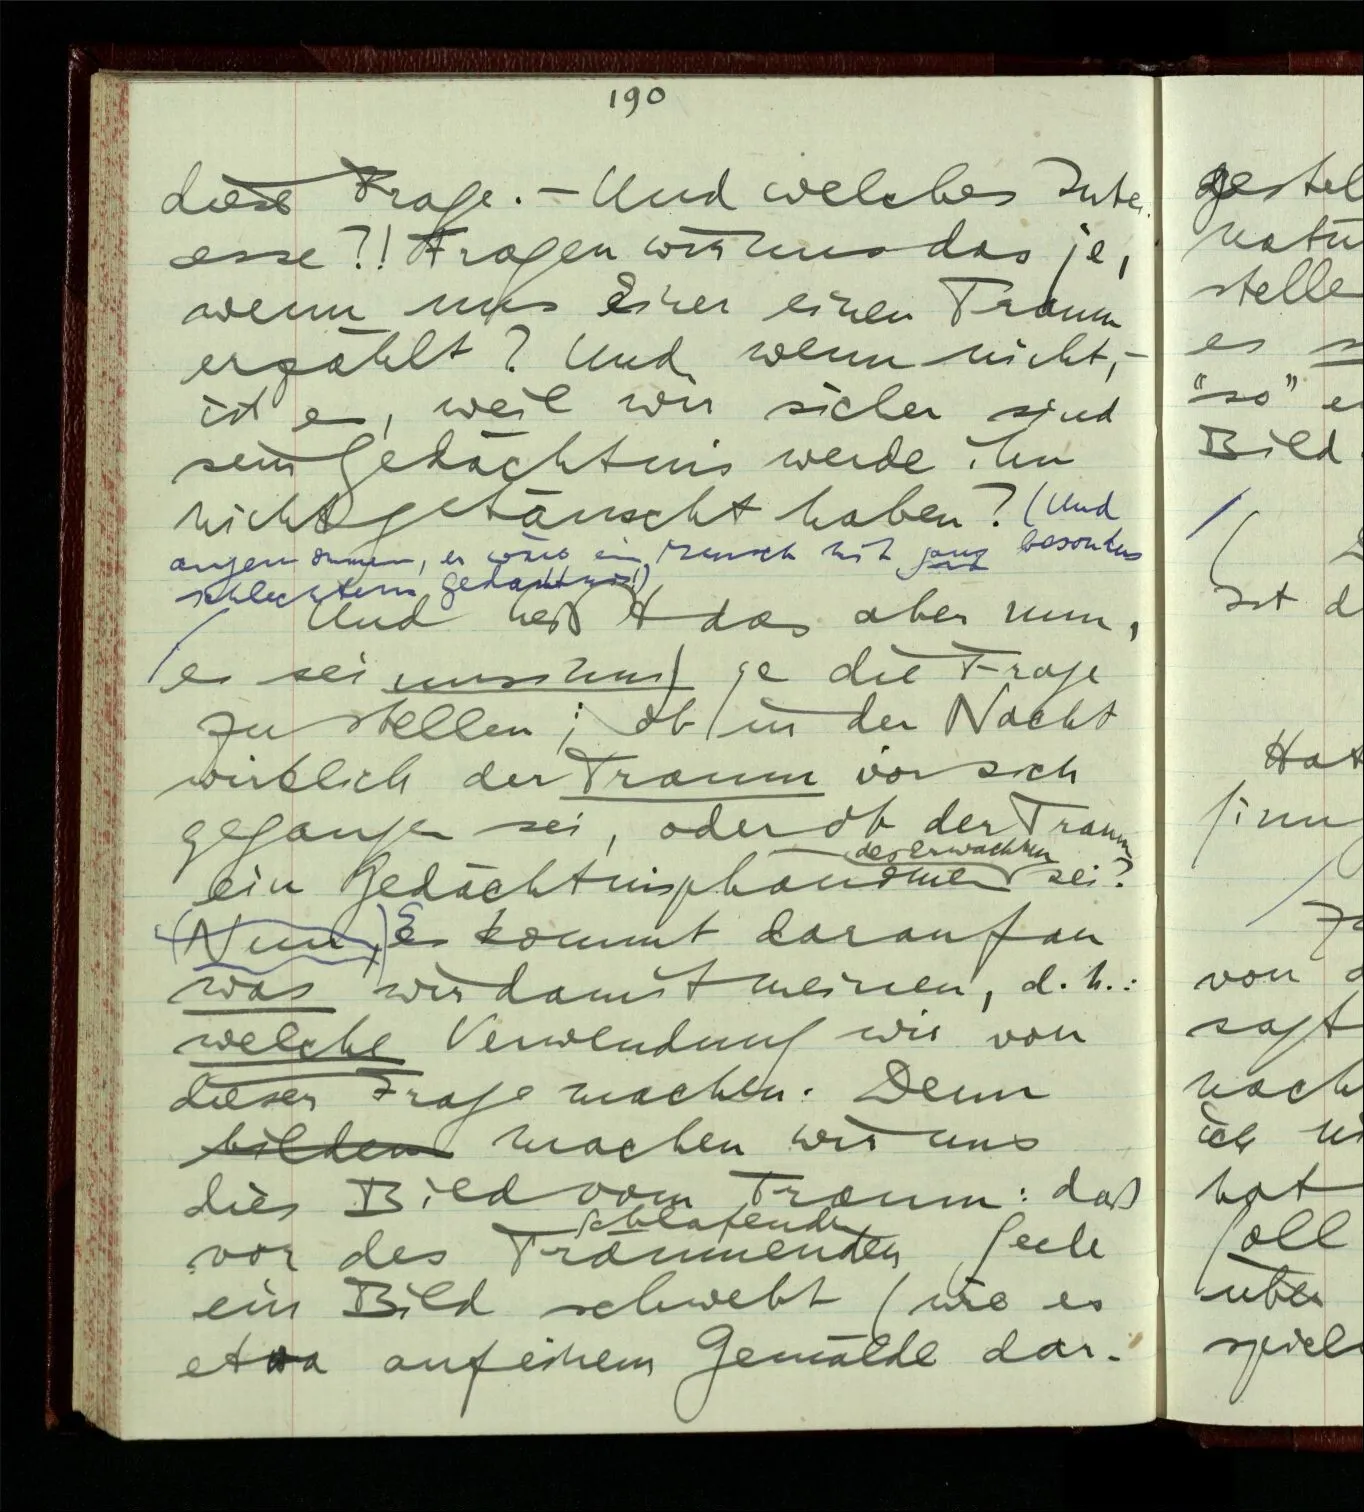 190
diese Frage. – Und welches Inter-
esse?! Fragen wir uns das je,
wenn uns Einer einen Traum
erzählt? Und, wenn nicht, –
ist es, weil wir sicher sind
sein Gedächtnis werde ihn
nicht getäuscht haben? (Und
angenommen, es wäre ein Mensch mit ganz besonders
schlechtem Gedächtnis!)
Und heißt das aber nun,
es sei unsinnig je die Frage
zu stellen; ob in der Nacht
wirklich der Traum vor sich
gegangen sei, oder ob der Traum
des Erwachten
ein Gedächtnisphänomen sei?
(Nun,) Es kommt darauf an
was wir damit meinen, d.h.:
welche Verwendung wir von
dieser Frage machen. Denn
bilden machen wir uns
dies Bild vom Traum: daß
schlafenden
vor des Träumenden Seele
ein Bild schwebt (wie es
etwa auf einem Gemälde dar-
gestel
natü
stelle
es
"so" e
Bild
(
Ist d
Hat
sinn
von d
sagt
nach
ich ni
hat
soll
über
spiel